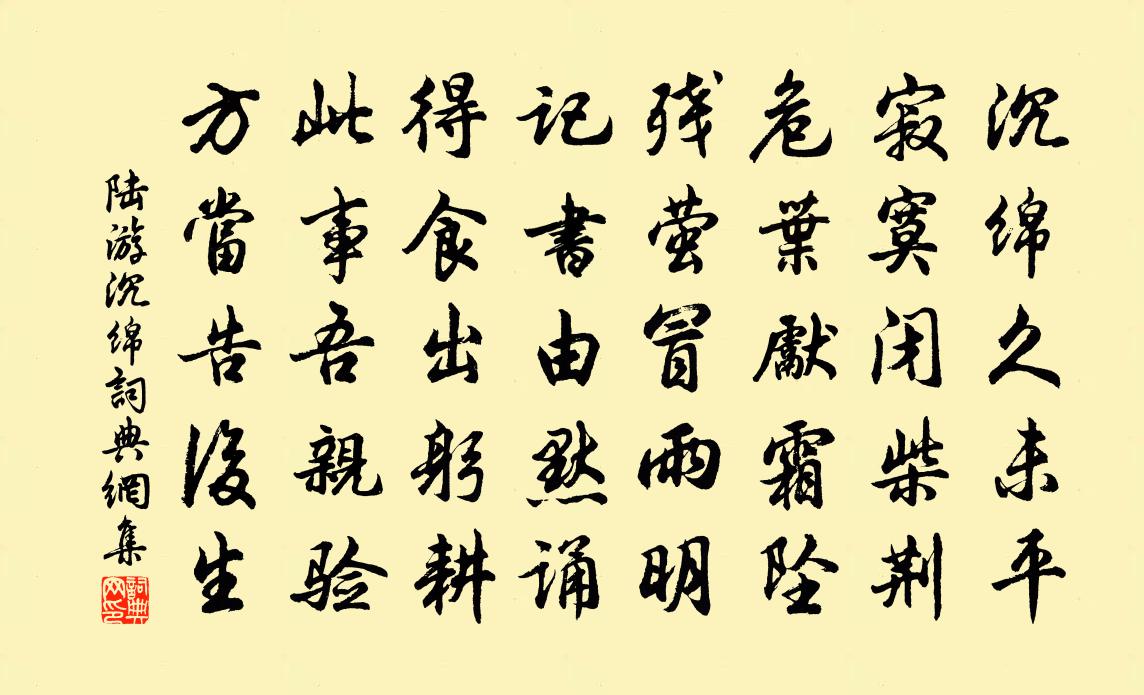 沉绵久未平
寂寞闭柴荆
危葉獻霜坠
残萤冒雨明
记書由默诵
得食出躬耕
此事吾親验
方當告後生
陆游沉绵詞典網集
詞典网印